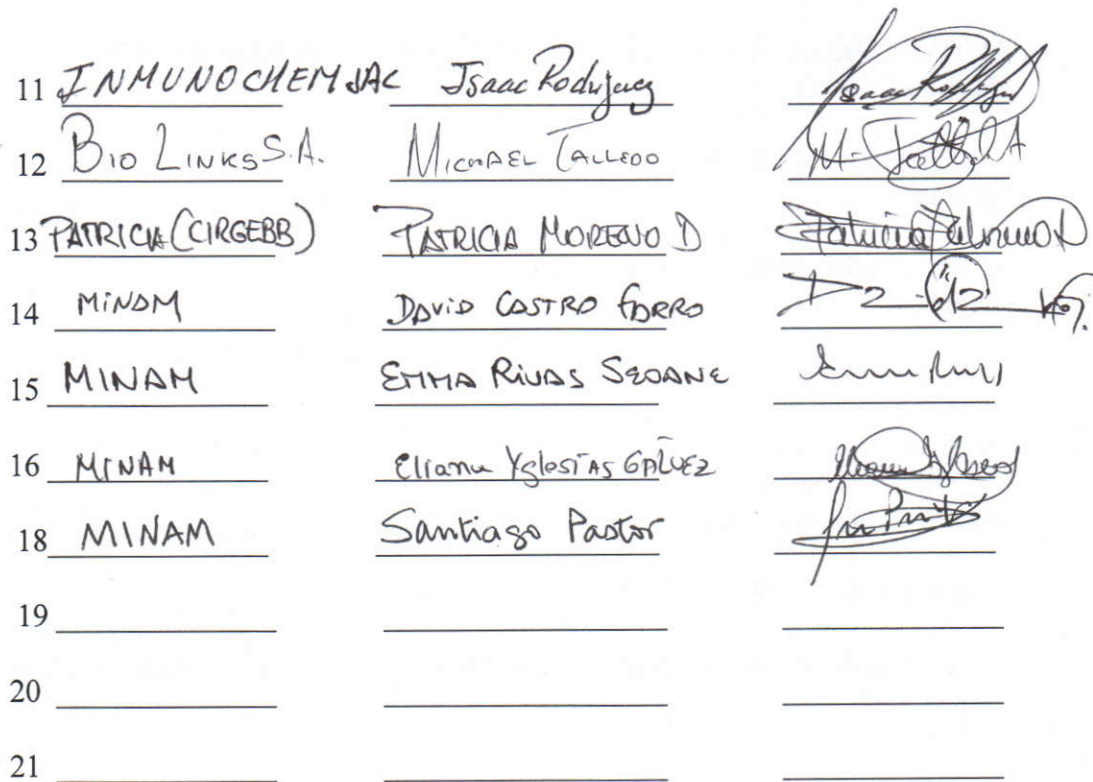 11 INMUNOCHEM SAC Isaac Rodriguez
12 BIO LINKS S.A. MICHAEL TALLEDO
13 PATRICIA (CIRGEBB) PATRICIA MORENO D
14 MINAM DAVID CASTRO GARRO
15 MINAM EMMA RIVAS SEOANE
16 MINAM Eliana Yglesias GALVEZ
18 MINAM Santiago Pastor
19
20
21